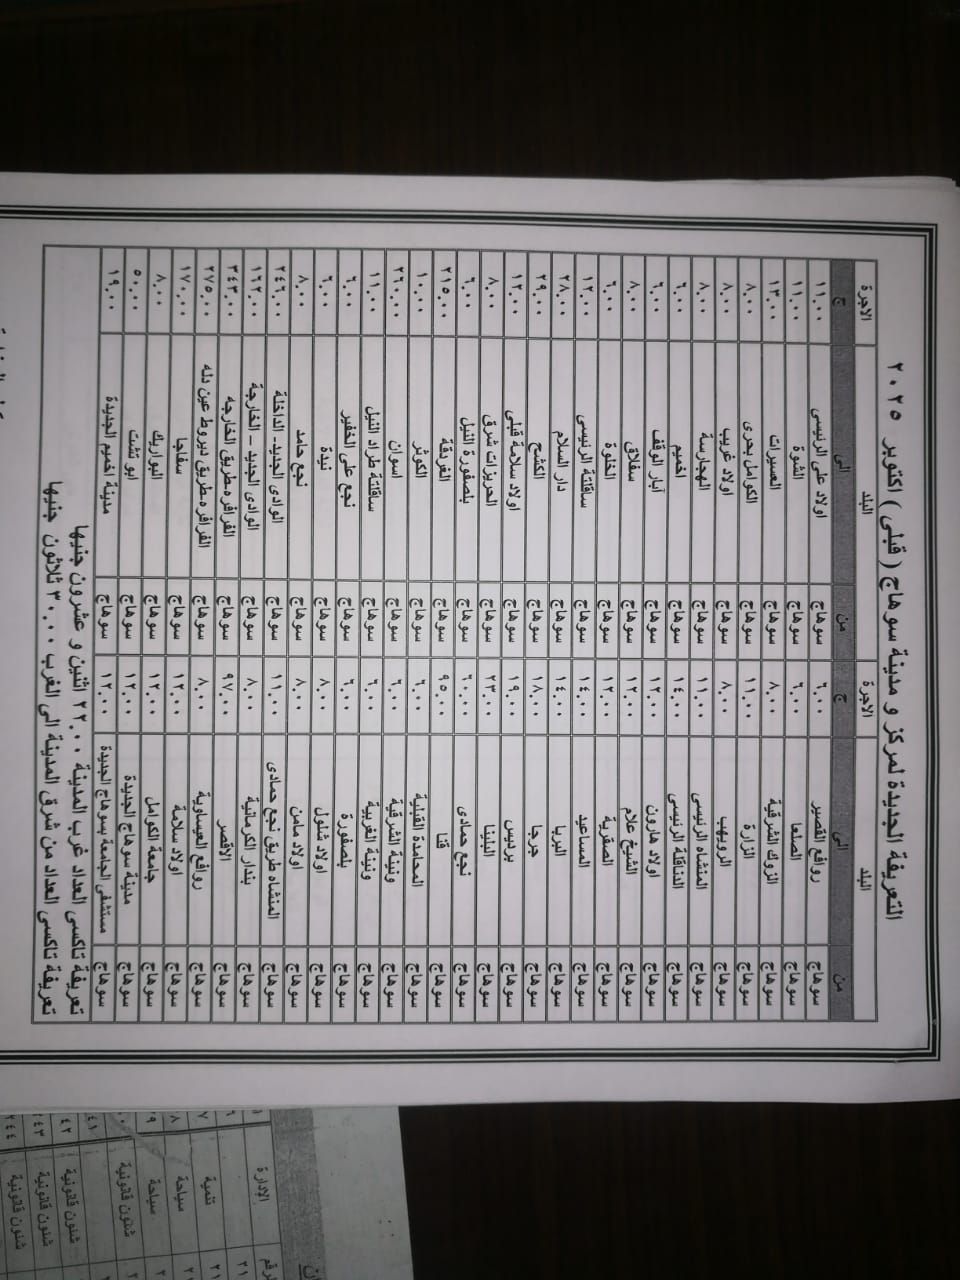 التعريفة الجديدة لمركز و مدينة سوهاج ( قبلى ) اكتوبر ٢٠٢٥
البلد الاجرة البلد الاجرة
من الى ج من الى ج
سوهاج روافع القصير ٦.٠٠ سوهاج اولاد على الرئيسى ١١.٠٠
سوهاج الصلعا ٦.٠٠ سوهاج الشوة ١١.٠٠
سوهاج الزوك الشرقية ٨.٠٠ سوهاج العسيرات ١٣.٠٠
سوهاج الزارة ١١.٠٠ سوهاج الكوامل بحرى ٨.٠٠
سوهاج الرويهب ٨.٠٠ سوهاج اولاد غريب ٨.٠٠
سوهاج المنشاه الرئيسى ١١.٠٠ سوهاج الهجارسة ٨.٠٠
سوهاج الدناقلة الرئيسى ١٤.٠٠ سوهاج اخميم ٦.٠٠
سوهاج اولاد هارون ١٢.٠٠ سوهاج أبار الوقف ٦.٠٠
سوهاج الشيخ علام ١٢.٠٠ سوهاج سفلاق ٨.٠٠
سوهاج الصقرية ١٢.٠٠ سوهاج الخلوة ٦.٠٠
سوهاج المساعيد ١٤.٠٠ سوهاج ساقلتة الرئيسى ١٢.٠٠
سوهاج البربا ١٤.٠٠ سوهاج دار السلام ٢٨.٠٠
سوهاج جرجا ١٨.٠٠ سوهاج الكشح ٢٩.٠٠
سوهاج برديس ١٩.٠٠ سوهاج اولاد سلامة قبلى ١٢.٠٠
سوهاج البلينا ٢٣.٠٠ سوهاج الحريزات شرق ٨.٠٠
سوهاج نجع حمادى ٦٠.٠٠ سوهاج بلصفورة النيل ٦.٠٠
سوهاج قنا ٩٥.٠٠ سوهاج الغردقة ٢١٥.٠٠
سوهاج المحامدة القبلية ٦.٠٠ سوهاج الكوثر ١٠.٠٠
سوهاج ونينة الشرقية ٦.٠٠ سوهاج اسوان ٢٦٠.٠٠
سوهاج ونينة الغربية ٦.٠٠ سوهاج ساقلتة طراد النيل ١١.٠٠
سوهاج بلصفورة ٦.٠٠ سوهاج نجع على الخفير ٦.٠٠
سوهاج اولاد شلول ٨.٠٠ سوهاج نيدة ٦.٠٠
سوهاج اولاد مامن ٨.٠٠ سوهاج نجع حامد ٨.٠٠
سوهاج المنشاه طريق نجع حمادى ١١.٠٠ سوهاج الوادى الجديد- الداخلة ٢٤٦.٠٠
سوهاج بندار الكرمانية ٨.٠٠ سوهاج الوادى الجديد – الخارجة ١٦٢.٠٠
سوهاج الاقصر ٩٧.٠٠ سوهاج الفرافره-طريق الخارجه ٣٤٣.٠٠
سوهاج روافع العيساوية ٨.٠٠ سوهاج الفرافره-طريق ديروط عين دله ٢٧٥.٠٠
سوهاج اولاد سلامة ١٢.٠٠ سوهاج سفاجا ١٧٠.٠٠
سوهاج جامعة الكوامل ١٢.٠٠ سوهاج البواريك ٨.٠٠
سوهاج مدينة سوهاج الجديدة ١٢.٠٠ سوهاج ابو تشت ٥٠.٠٠
سوهاج مستشفى الجامعة بسوهاج الجديدة ١٢.٠٠ سوهاج مدينة اخميم الجديدة ١٩.٠٠
تعريفة تاكسى العداد غرب المدينة ٢٢.٠٠ اثنين و عشرون جنيها
تعريفة تاكسى العداد من شرق المدينة الى الغرب ٣٠.٠٠ ثلاثون جنيها
الادارة
تنمية
سياحة
سياحة
شئون قانونية
شئون قانونية
شئون قانونية
شئون قانونية